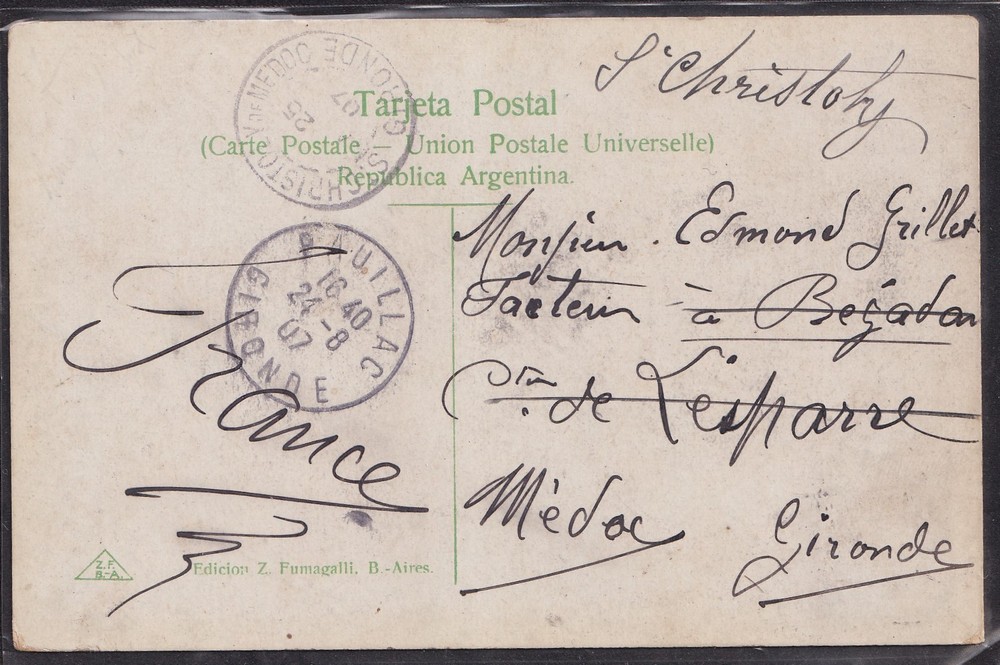 St Christoly
Tarjeta Postal
(Carte Postale — Union Postale Universelle)
República Argentina.
ST CHRISTOLY DE MEDOC GIRONDE
25
07
PAUILLAC
16 40
24 - 8
07
GIRONDE
Monsieur Edmond Grillet
Facteur à Bégadan
Cton de Lesparre
Médoc Gironde
France
Z.F.
B.-A.
Edicion Z. Fumagalli. B.-Aires.